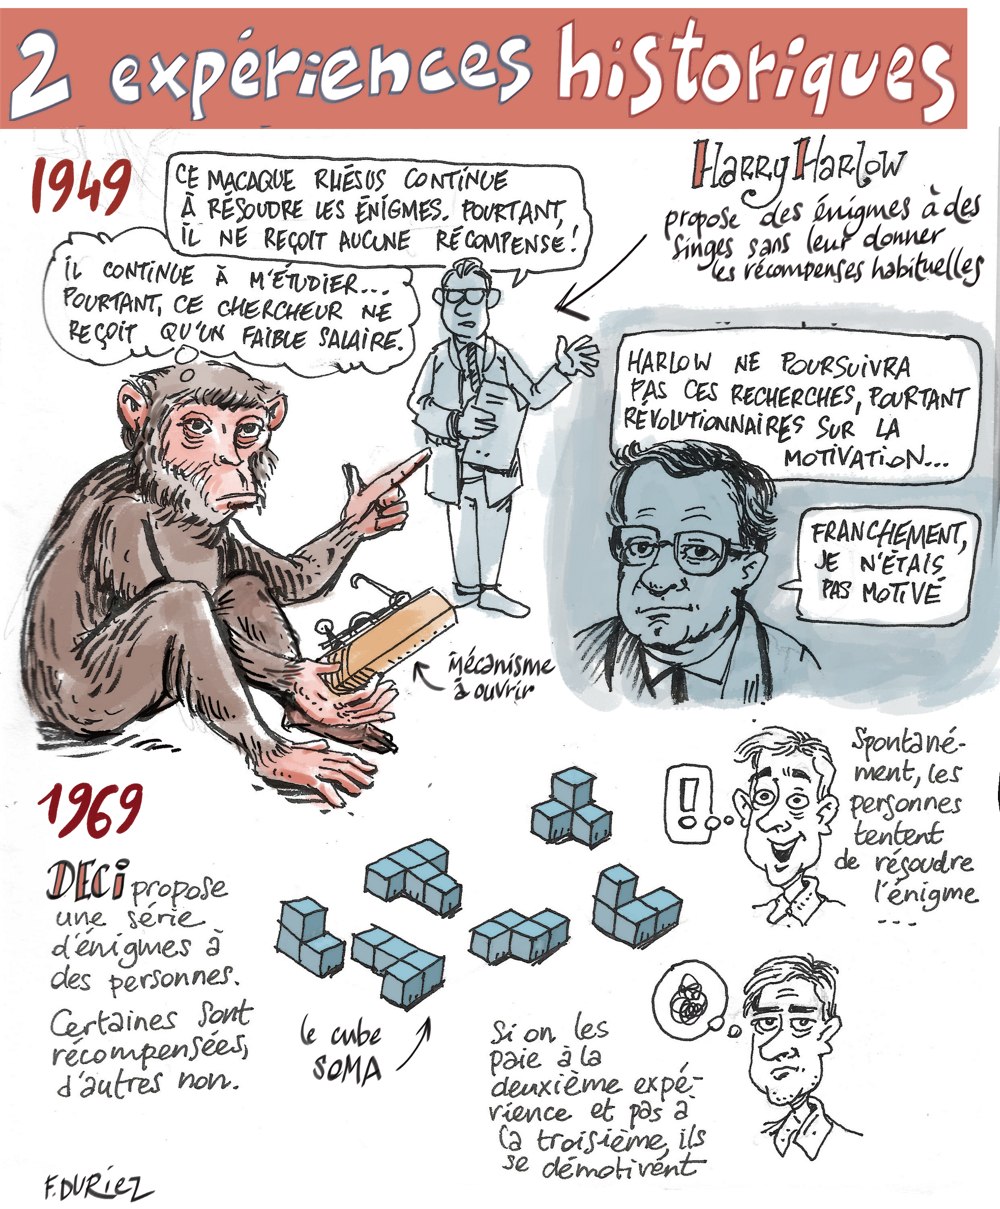 2 expériences historiques
1949
CE MACAQUE RHÉSUS CONTINUE
À RÉSOUDRE LES ÉNIGMES. POURTANT,
IL NE REÇOIT AUCUNE RÉCOMPENSE!
IL CONTINUE À M'ÉTUDIER...
POURTANT, CE CHERCHEUR NE
REÇOIT QU'UN FAIBLE SALAIRE.
HARRY HARLOW
propose des énigmes à des
singes sans leur donner
les récompenses habituelles
HARLOW NE POURSUIVRA
PAS CES RECHERCHES, POURTANT
RÉVOLUTIONNAIRES SUR LA
MOTIVATION...
FRANCHEMENT,
JE N'ÉTAIS
PAS MOTIVÉ
mécanisme
à ouvrir
1969
DECI propose
une série
d'énigmes à
des personnes.
Certaines sont
récompensées,
d'autres non.
le cube
SOMA
!
Spontané-
ment, les
personnes
tentent
de résoudre
l'énigme
...
Si on les
paie à la
deuxième expé-
rience et pas à
la troisième, ils
se démotivent
F. DURIEZ